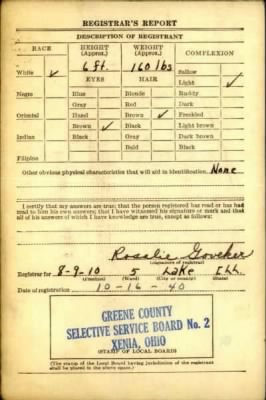 REGISTRAR'S REPORT
DESCRIPTION OF REGISTRANT
RACE HEIGHT (Approx.) WEIGHT (Approx.) COMPLEXION
White ✓ 6 ft. 160 lbs Sallow
EYES HAIR Light ✓
Negro Blue Blonde Ruddy
Gray Red Dark
Oriental Hazel Brown ✓ Freckled
Brown ✓ Black Light brown
Indian Black Gray Dark brown
Bald Black
Filipino
Other obvious physical characteristics that will aid in identification. None
I certify that my answers are true; that the person registered has read or has had
read to him his own answers; that I have witnessed his signature or mark and that
all of his answers of which I have knowledge are true, except as follows:
Rosalie Goveker
(Signature of registrar)
Registrar for 8-9-10 5 Lake Ill.
(Precinct) (Ward) (City or county) (State)
Date of registration 10-16-40
GREENE COUNTY
SELECTIVE SERVICE BOARD No. 2
XENIA, OHIO
(STAMP OF LOCAL BOARD)
(The stamp of the Local Board having jurisdiction of the registrant
shall be placed in the above space.)